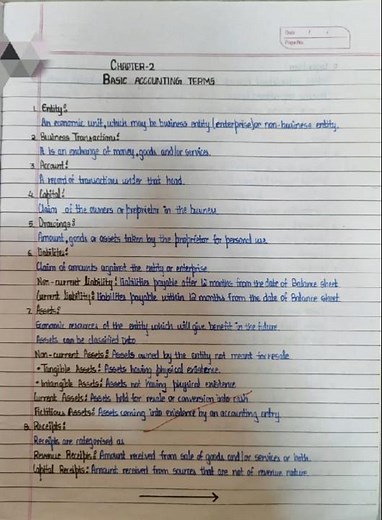 Date / /
Page No.
CHAPTER-2
BASIC ACCOUNTING TERMS
1. Entity:
An economic unit, which may be business entity (enterprise) or non-business entity.
2. Business Transactions:
It is an exchange of money, goods and/or services.
3. Account:
A record of transactions under that head.
4. Capital:
Claim of the owners or proprietor in the business
5. Drawings:
Amount, goods or assets taken by the proprietor for personal use
6. Liabilities:
Claim of amounts against the entity or enterprise
Non-current liability: liabilities payable after 12 months from the date of Balance sheet
Current liability: liabilities payable within 12 months from the date of Balance sheet
7. Assets:
Economic resources of the entity which will give benefit in the future
Assets can be classified into
Non-current Assets: Assets owned by the entity not meant for resale
• Tangible Assets: Assets having physical existence.
• Intangible Assets: Assets not having physical existence
Current Assets: Assets held for resale or conversion into cash
Fictitious Assets: Assets coming into existence by an accounting entry
8. Receipts:
Receipts are categorised as
Revenue Receipts: Amount received from sale of goods and/or services or both.
Capital Receipts: Amount received from sources that are not of revenue nature